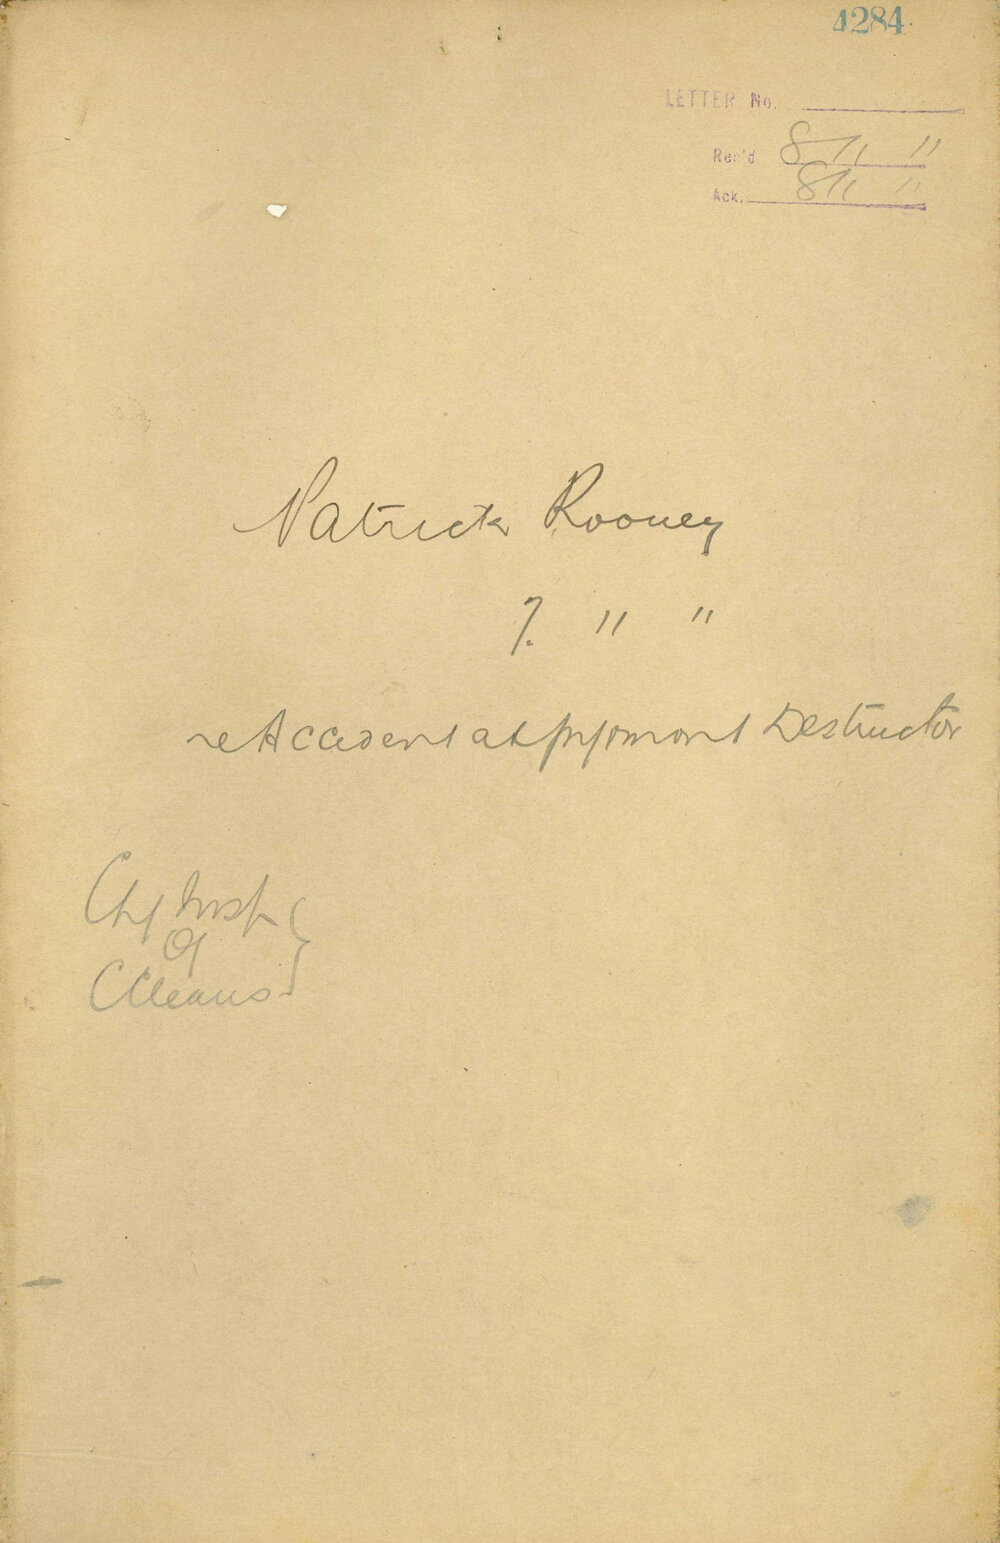 4284
LETTER No.
Rec'd 8/11 "
Ack. 8/11 "
Patrick Rooney
7. " "
re Accident at Pyrmont Destructor
Chf Insp
of
Cleans